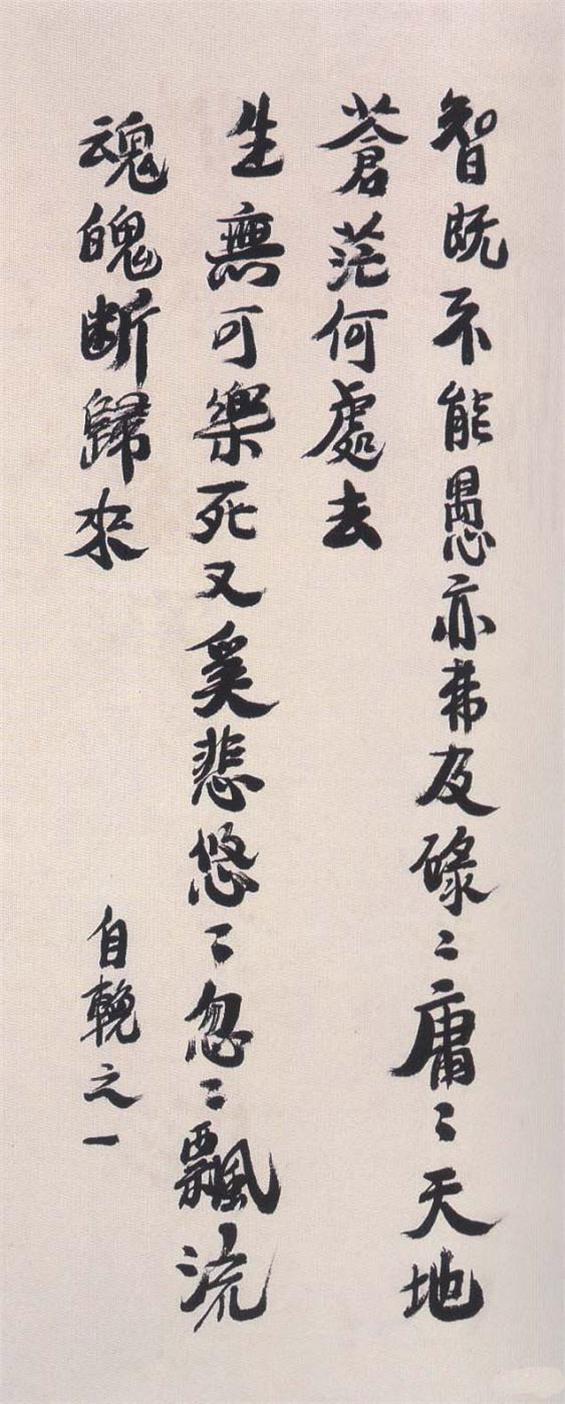 智既不能愚亦弗及碌〻庸〻天地
蒼茫何處去
生無可樂死又奚悲悠〻忽〻飄流
魂魄断歸来
自輓之一